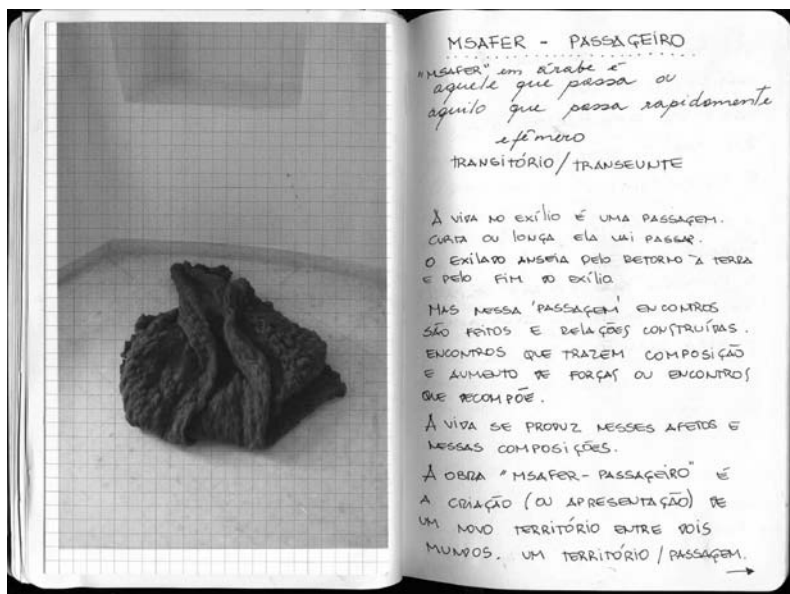 MSAFER - PASSAGEIRO
"MSAFER" em árabe é
aquele que passa ou
aquilo que passa rapidamente
efêmero
TRANSITÓRIO / TRANSEUNTE
A VIDA NO EXÍLIO É UMA PASSAGEM.
CURTA OU LONGA ELA VAI PASSAR.
O EXILADO ANSEIA PELO RETORNO À TERRA
E PELO FIM DO EXÍLIO
MAS NESSA 'PASSAGEM' ENCONTROS
SÃO FEITOS E RELAÇÕES CONSTRUÍDAS.
ENCONTROS QUE TRAZEM COMPOSIÇÃO
E AUMENTO DE FORÇAS OU ENCONTROS
QUE DECOMPÕE.
A VIDA SE PRODUZ NESSES AFETOS E
NESSAS COMPOSIÇÕES.
A OBRA "MSAFER-PASSAGEIRO" É
A CRIAÇÃO (OU APRESENTAÇÃO) DE
UM NOVO TERRITÓRIO ENTRE DOIS
MUNDOS. UM TERRITÓRIO / PASSAGEM.
→